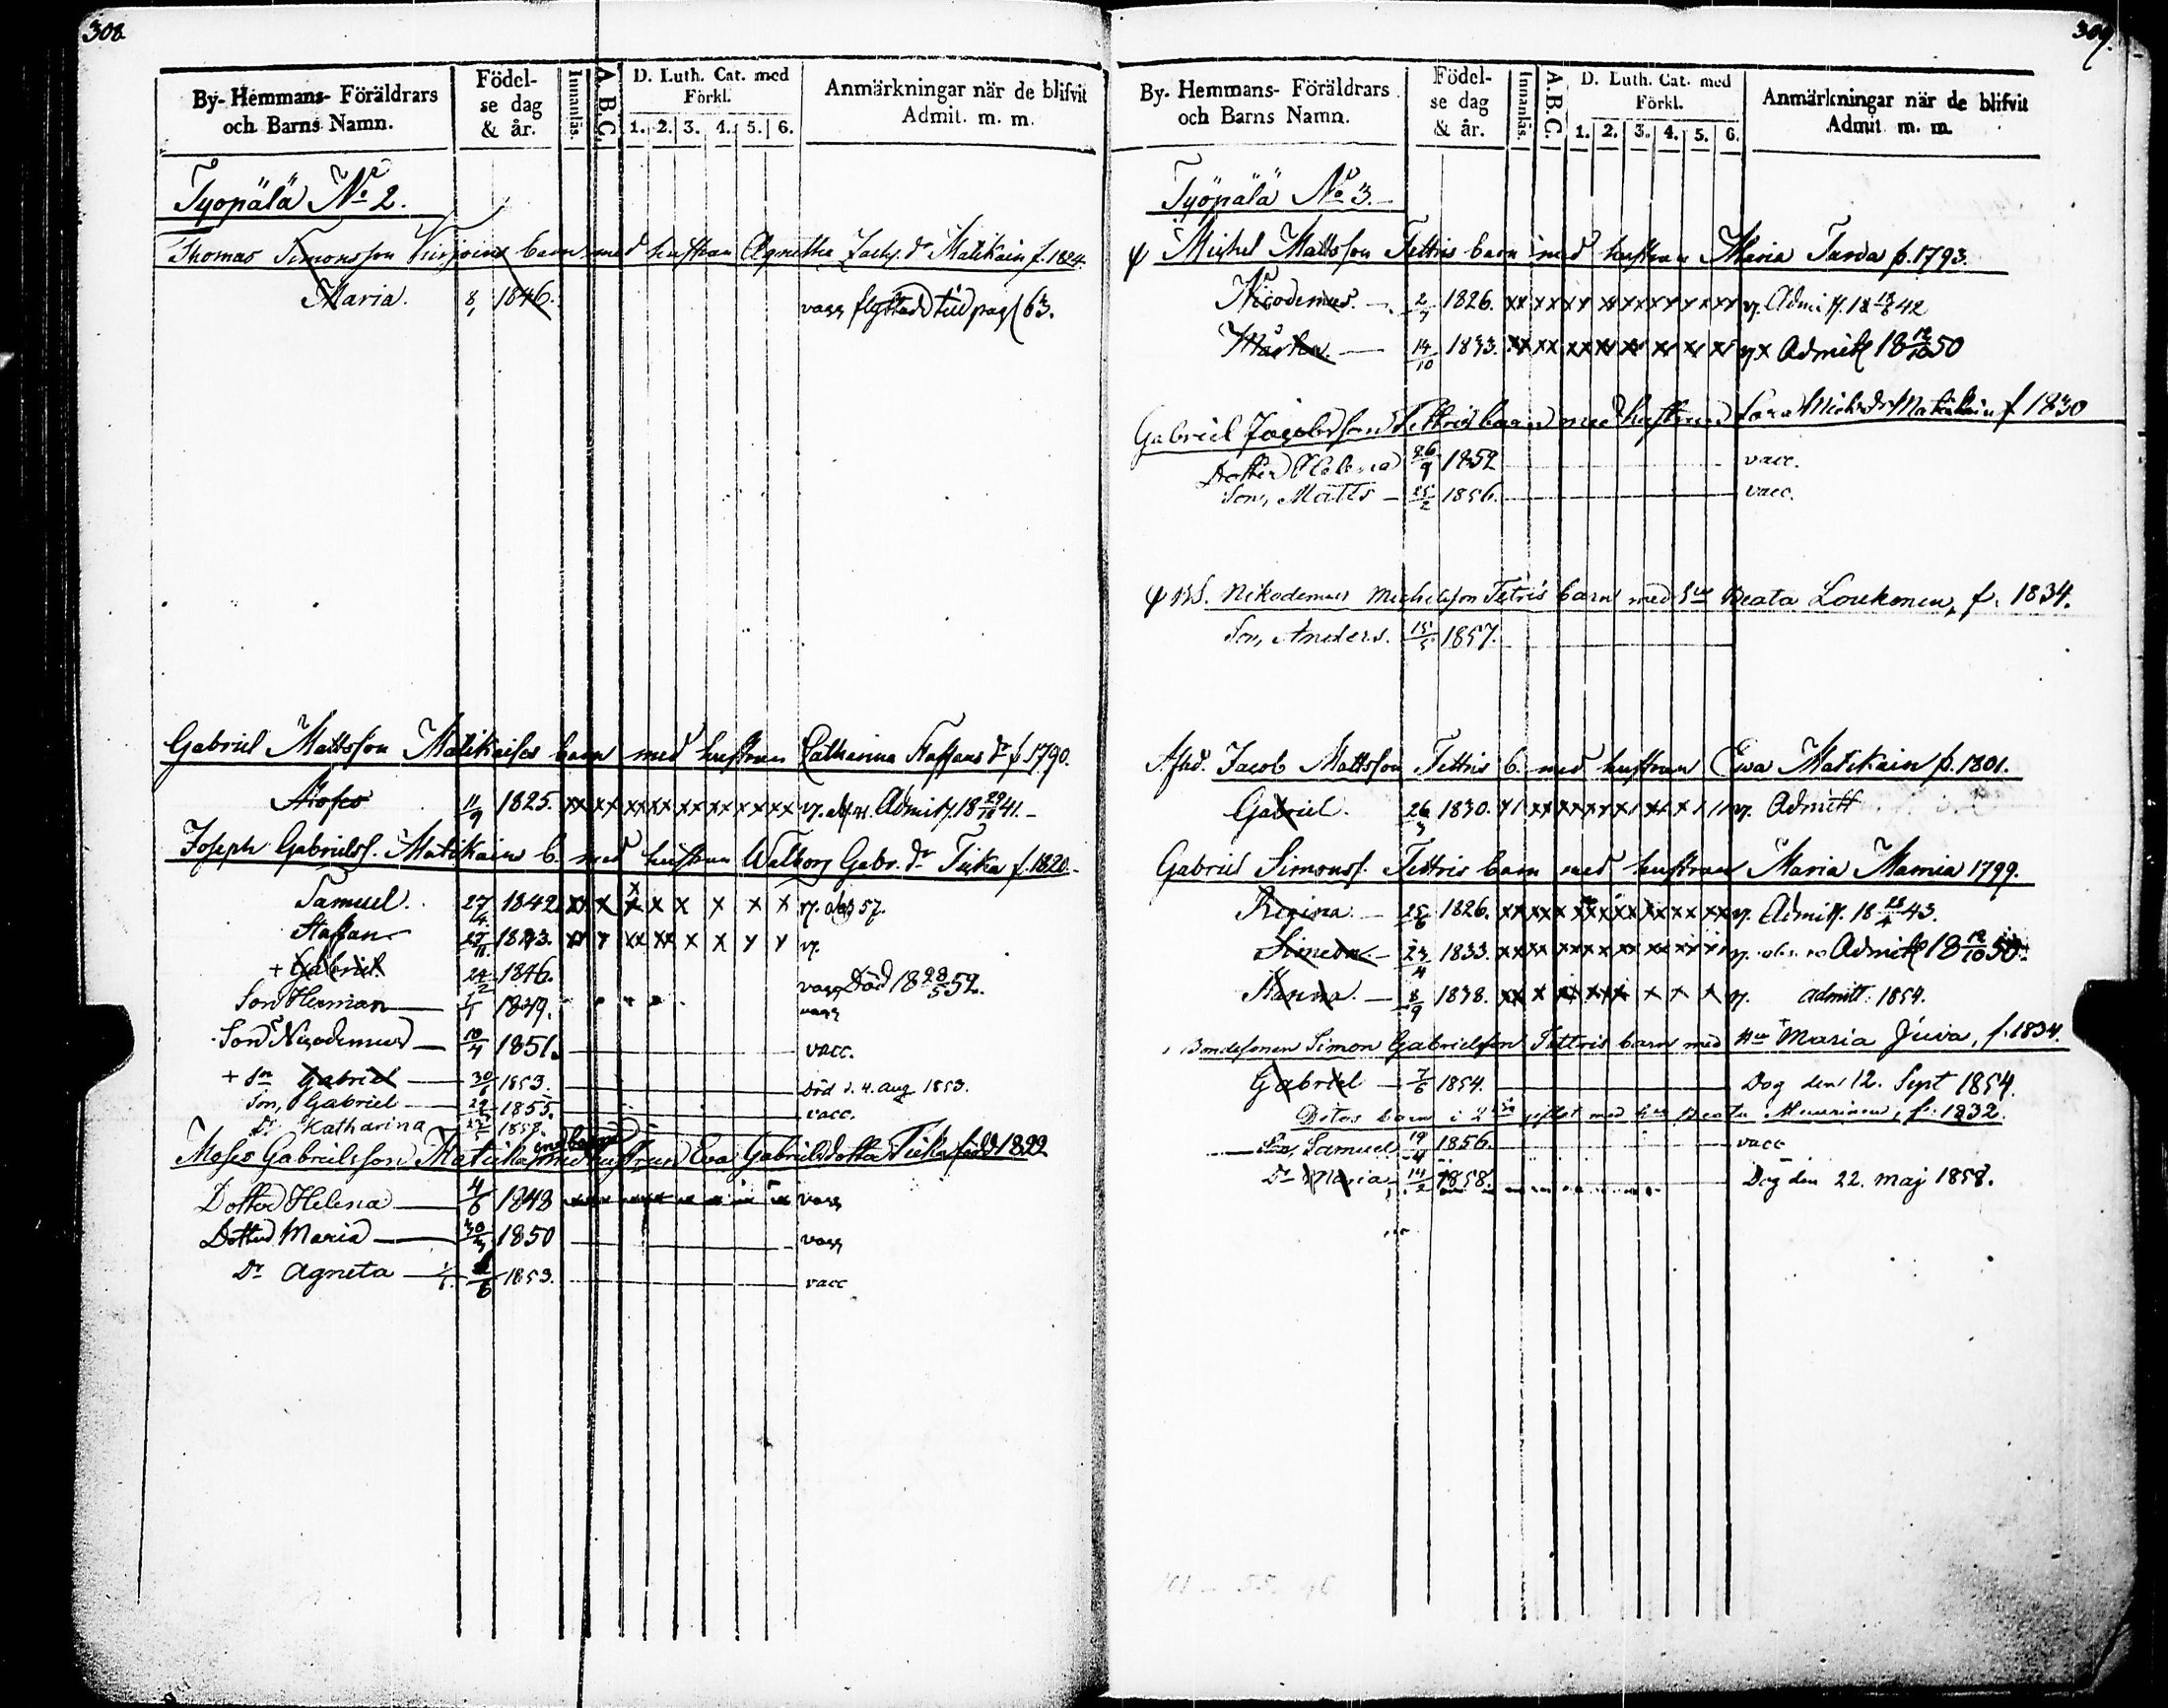 308.
By- Hemmans- Föräldrars och Barns Namn.
Födelse dag & år.
Innanläs.
A.B.C.
D. Luth. Cat. med Förkl.
1. 2. 3. 4. 5. 6.
Anmärkningar när de blifvit Admit. m. m.
Työpälä No 2.
Thomas Simonsson barn med hustrun Agnetha Zachs. dr Matikain f. 1824.
Maria. 8/1 1846. vacc flyttad till pag 63.
Gabriel Mattsson Matikaises barn med hustrun Catharina Staffans dr f 1790.
Moses 11/9 1825. Admitt. 18 41.
Joseph Gabrielss. Matikains b. med hustrun Walborg Gabr. dr Tiika f. 1820.
Samuel. 27/4 1842 v. 57.
Staffan 1843. v.
+ Gabriel 24/2 1846. vacc Död 18 28/5 52.
Son Herman 1/1 1849. vacc
Son Nicodemus 10/4 1851. vacc.
+ Sn Gabriel 30/6 1853. Död d. 4. Aug 1853.
Son, Gabriel 1855. vacc.
Dr Katharina 1858.
Moses Gabrielsson Matikainens barn med hustrun Eva Gabrielsdotter Tiika född 1822
Dotter Helena 4/6 1848 vacc
Dotter Maria 30/3 1850 vacc
Dr Agneta 1/6 1853. vacc
309.
By- Hemmans- Föräldrars och Barns Namn.
Födelse dag & år.
Innanläs.
A.B.C.
D. Luth. Cat. med Förkl.
1. 2. 3. 4. 5. 6.
Anmärkningar när de blifvit Admit. m. m.
Työpälä No 3.
Michel Mattsson Tettris barn med hustrun Maria Tarva f. 1793.
Nicodemus. 2/7 1826. v. Admitt. 18 42
14/10 1833. v x Admitt 18 12/10 50
Gabriel Jacobsson Tettris barn med hustrun Sara Michelsdr Matikain f. 1830
Dotter Helena 26/9 1852 vacc.
Son, Matts 25/2 1856. vacc.
BS. Nikodemus Michelsson Tetris barn med hu Beata Loukonen, f. 1834.
Son, Anders. 15/5 1857.
Afskd. Jacob Mattsson Tettris b. med hustrun Ewa Matikain f. 1801.
Gabriel. 26/3 1830. v. Admitt
Gabriel Simonss. Tettris barn med hustrun Maria Mamia 1799.
Regina. 25/6 1826. v. Admitt. 18 43.
Simeon. 23/4 1833. v. Admitt 18 12/10 50.
Hanna. 8/9 1838. v. admitt: 1854.
Bondesonen Simon Gabrielsson Tettris barn med Hu Maria Juva, f. 1834.
Gabriel 7/6 1854. Dog den 12. Sept 1854.
Ditos barn i 2dra giftet med hu Beata Muurinen, f. 1832.
Son, Samuel 19/4 1856. vacc
Dr Maria 14/2 1858. Dog den 22. maj 1858.